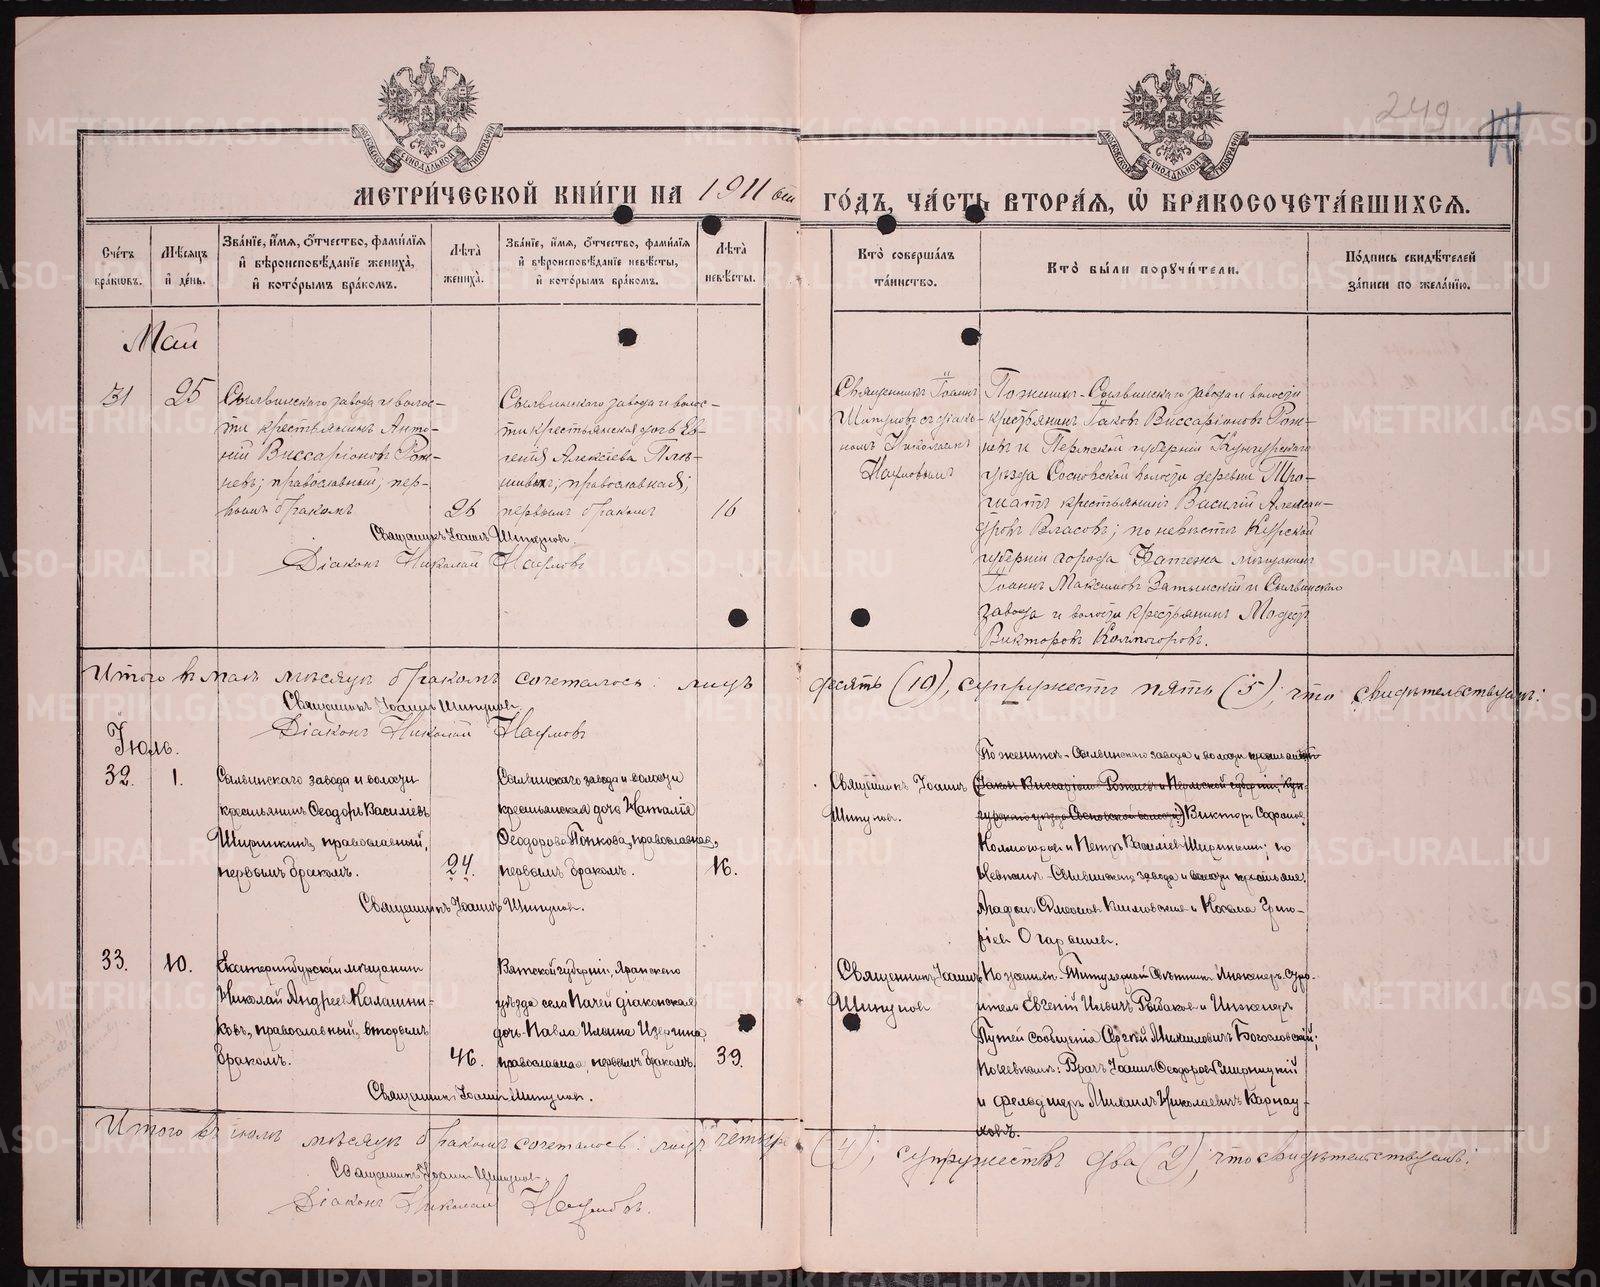 249
МЕТРИ́ЧЕСКОЙ КНИ́ГИ НА 1911
ГО́ДЪ, ЧА́СТЬ ВТОРА́Я, Ѡ҆ БРАКОСОЧЕТА́ВШИХСЯ.
Сче́тъ бра́кѡвъ.
Мѣ́сяцъ и҆ де́нь.
Зва́нїе, и҆́мя, ѻ҆́тчество, фами́лїя
и҆ вѣроисповѣ́данїе жениха̀,
и҆ кото́рымъ бра́комъ.
Лѣ́та жениха̀.
Зва́нїе, и҆́мя, ѻ҆́тчество, фами́лїя
и҆ вѣроисповѣ́данїе невѣ́сты,
и҆ кото́рымъ бра́комъ.
Лѣ́та невѣ́сты.
Кто̀ соверша́лъ
та́инство.
Кто̀ бы́ли поручи́тели.
По́дпись свидѣ́телей
за́писи по жела́нїю.
Май
31
25
Сылвинскаго завода и волос-
ти крестьянинъ Анто-
ній Виссаріоновъ Рож-
невъ; православный; пер-
вымъ бракомъ
26
Сылвинскаго завода и волос-
ти крестьянская дочь Ев-
генія Алексіева Плѣ-
православная;
первымъ бракомъ
16
Священникъ Іоаннъ
Шипуновъ съ діако-
номъ Николаемъ
Наумовымъ
По женихѣ - Сылвинскаго завода и волости
крестьянинъ Іаковъ Виссаріоновъ Рож-
невъ и Пермской губерніи Кунгурскаго
уѣзда Сосновской волости деревни
крестьянинъ Василій Алексан-
дровъ Власовъ; по невѣстѣ Курской
губерніи города Фатежа мѣщанинъ
Іоаннъ Максимовъ и Сылвинскаго
завода и волости крестьянинъ Модестъ
Викторовъ Колмогоровъ.
Священникъ Іоаннъ Шипуновъ.
Діаконъ Николай Наумовъ
Итого въ маѣ мѣсяцѣ бракомъ сочеталось: лицъ десять (10), супружествъ пять (5); что свидѣтельствуемъ:
Священникъ Іоаннъ Шипуновъ.
Діаконъ Николай Наумовъ
Іюль.
32.
1.
Сылвинскаго завода и волости
крестьянинъ Ѳеодоръ Василіевъ
Ширинкинъ, православный,
первымъ бракомъ.
24.
Сылвинскаго завода и волости
крестьянская дочь Наталія
Ѳеодорова Попкова, православная,
первымъ бракомъ.
16.
Священникъ Іоаннъ
Шипуновъ.
По женихѣ - Сылвинскаго завода и волости крестьяне
(Іаковъ Виссаріоновъ Рожневъ и Пермской губерніи, Кун-
гурскаго уѣзда Сосновской волости) Викторъ
Колмогоровъ и Петръ Василіевъ Ширинкинъ; по
невѣстѣ - Сылвинскаго завода и волости крестьяне:
и Косьма Григо-
ріевъ
Священникъ Іоаннъ Шипуновъ.
33.
10.
Екатеринбургскій мѣщанинъ
Николай Андреевъ Калашни-
ковъ, православный, вторымъ
бракомъ.
46.
Вятской губерніи, Яранскаго
уѣзда села діаконская
дочь Павла Ильина Изергина,
православная первымъ бракомъ.
39.
Священникъ Іоаннъ
Шипуновъ
По женихѣ: Титулярный Совѣтникъ Инженеръ стро-
итель Евгеній Ильичъ Рыбаковъ и Инженеръ
Путей сообщенія Сергѣй Михаиловичъ Богословскій;
По невѣстѣ: Врачъ Іоаннъ Ѳеодоровъ Смирницкій
и фельдшеръ Михаилъ Николаевичъ Карнау-
ховъ.
Священникъ Іоаннъ Шипуновъ.
Итого въ іюлѣ мѣсяцѣ бракомъ сочеталось: лицъ четыре (4); супружествъ два (2); что свидѣтельствуемъ:
Священникъ Іоаннъ Шипуновъ,
Діаконъ Николай Наумовъ.
METRIKI.GASO-URAL.RU